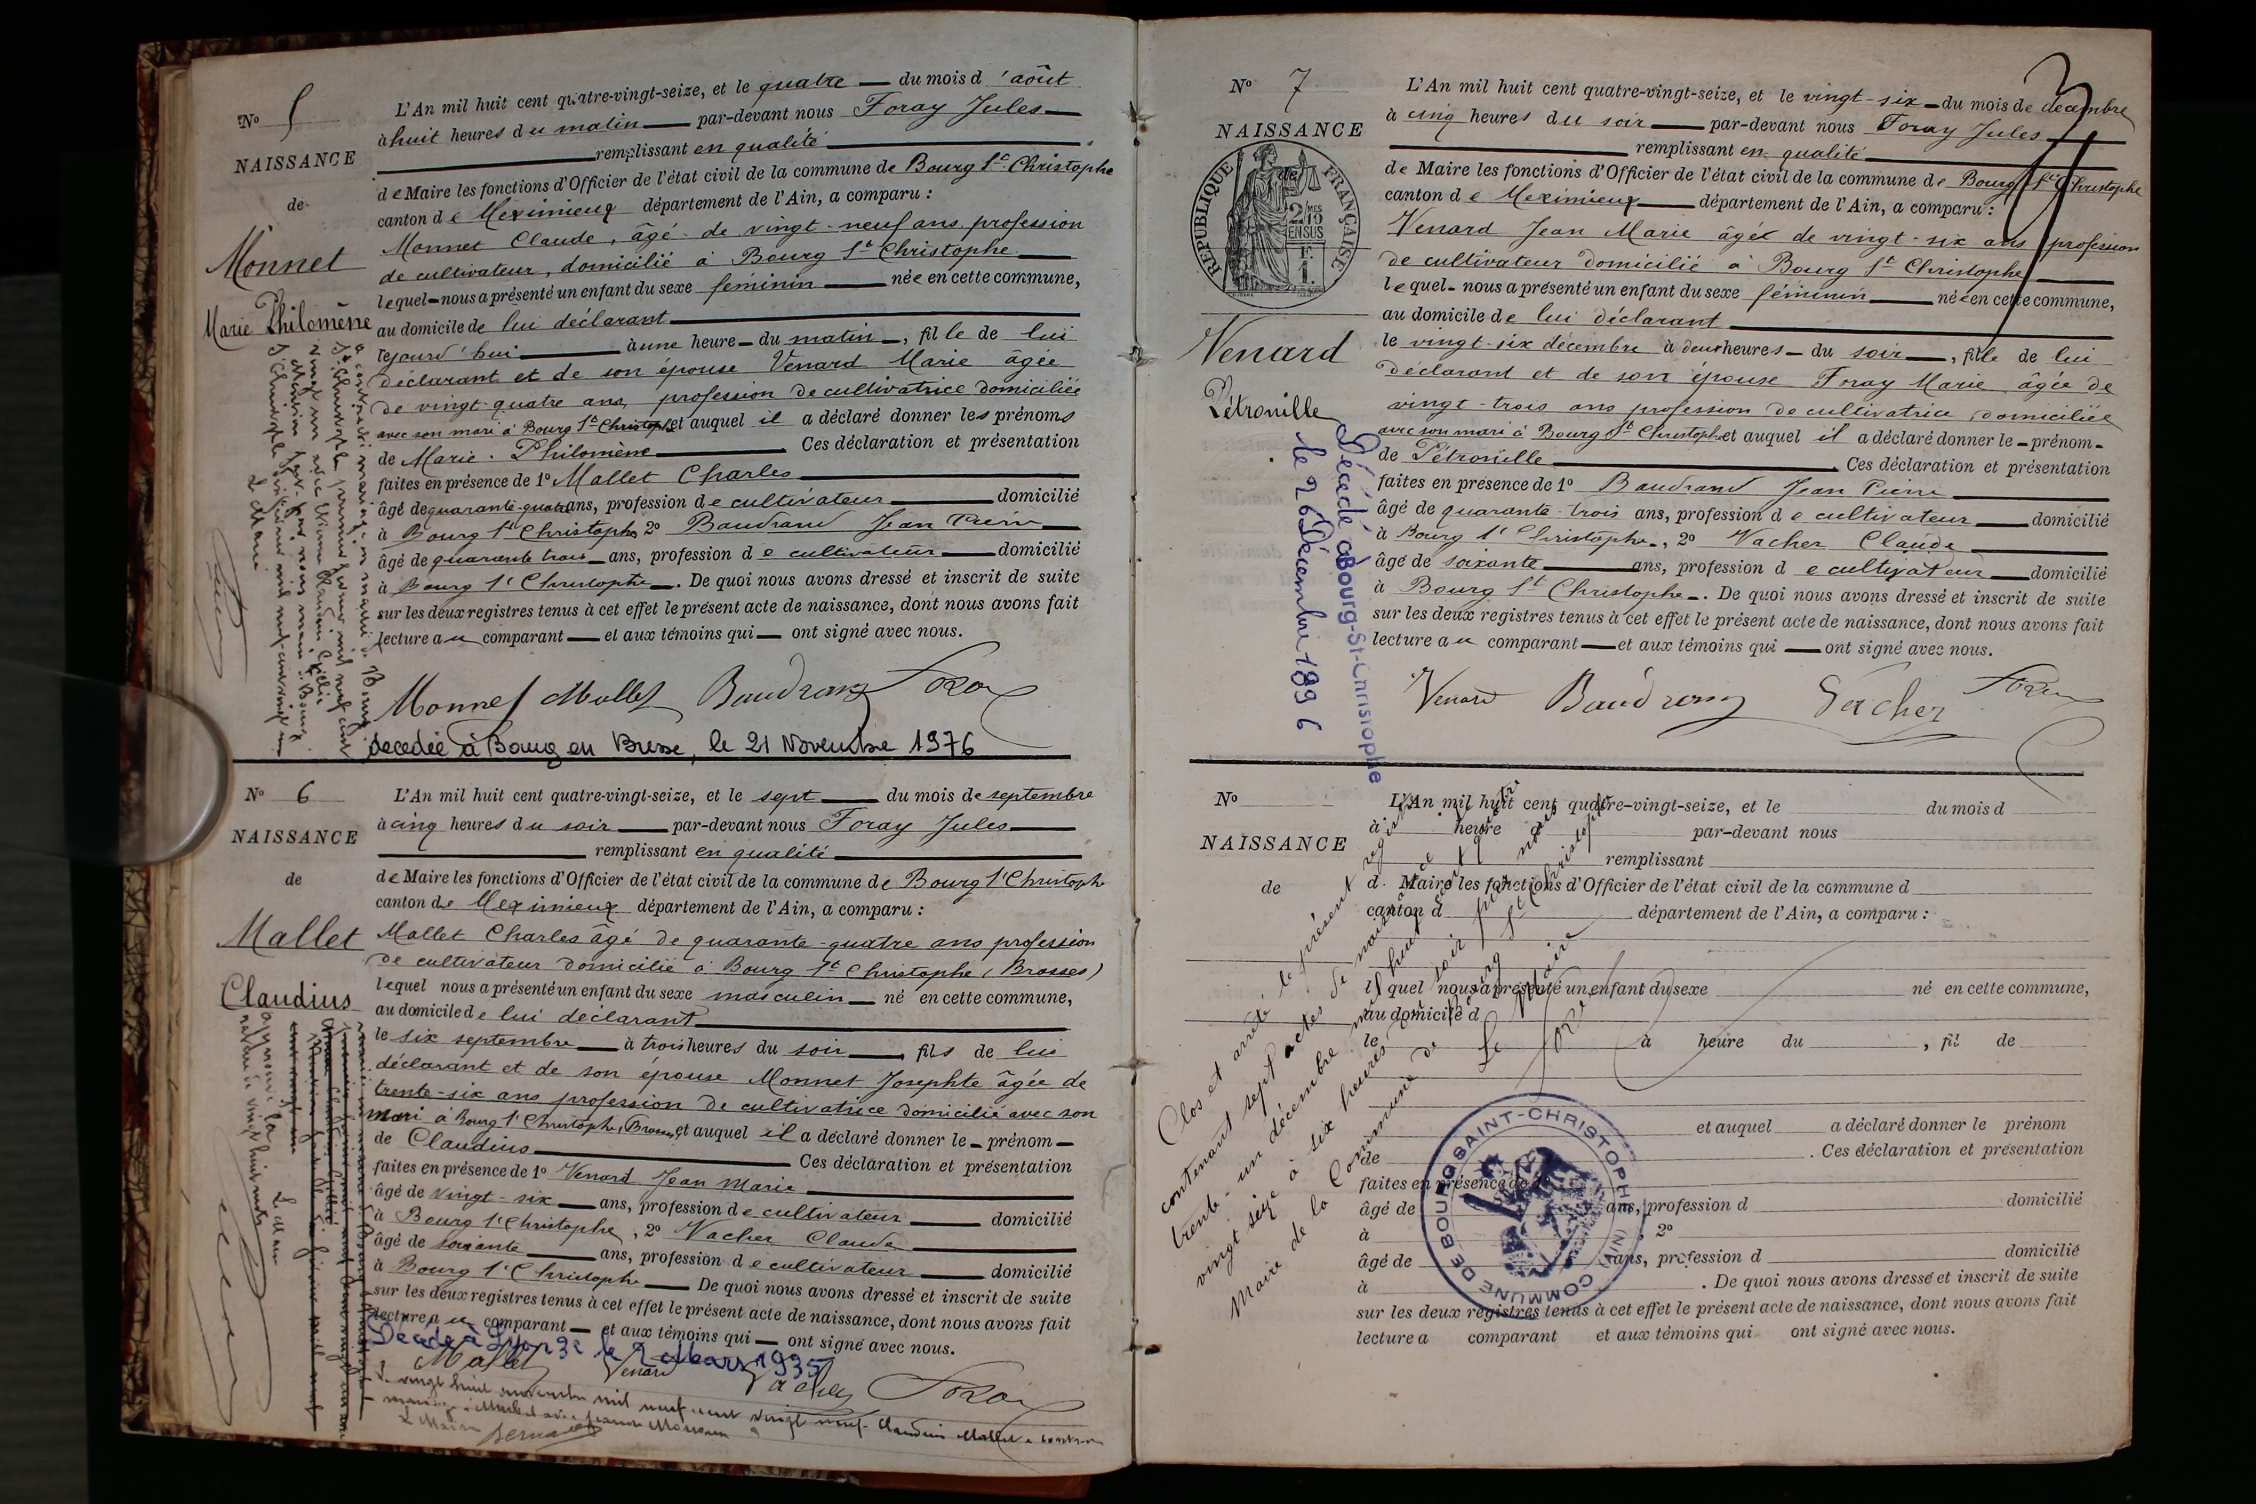 Nº 5
NAISSANCE
de
Monnet
Marie Philomène
L'An mil huit cent quatre-vingt-seize, et le quatre — du mois d'août
à huit heures du matin — par-devant nous Foray Jules —
remplissant en qualité
de Maire les fonctions d'Officier de l'état civil de la commune de Bourg St Christophe
canton de Meximieux département de l'Ain, a comparu :
Monnet Claude, âgé de vingt-neuf ans profession
de cultivateur, domicilié à Bourg St Christophe
lequel nous a présenté un enfant du sexe féminin — née en cette commune,
au domicile de lui déclarant
cejourd'hui — à une heure — du matin —, fille de lui
déclarant et de son épouse Venard Marie âgée
de vingt-quatre ans, profession de cultivatrice domiciliée
avec son mari à Bourg St Christophe et auquel il a déclaré donner les prénoms
de Marie-Philomène — Ces déclaration et présentation
faites en présence de 1º Mallet Charles
âgé de quarante-quatre ans, profession de cultivateur — domicilié
à Bourg St Christophe 2º Baudrand Jean Pierre
âgé de quarante trois — ans, profession de cultivateur — domicilié
à Bourg St Christophe —. De quoi nous avons dressé et inscrit de suite
sur les deux registres tenus à cet effet le présent acte de naissance, dont nous avons fait
lecture au comparant — et aux témoins qui — ont signé avec nous.
Monnet Mallet Baudrand Foray
décédée à Bourg en Bresse, le 21 Novembre 1976
Nº 6
NAISSANCE
de
Mallet
Claudius
L'An mil huit cent quatre-vingt-seize, et le sept — du mois de septembre
à cinq heures du soir — par-devant nous Foray Jules —
remplissant en qualité
de Maire les fonctions d'Officier de l'état civil de la commune de Bourg St Christophe
canton de Meximieux département de l'Ain, a comparu :
Mallet Charles âgé de quarante-quatre ans profession
de cultivateur domicilié à Bourg St Christophe (Brosses)
lequel nous a présenté un enfant du sexe masculin — né en cette commune,
au domicile de lui déclarant
le six septembre — à trois heures du soir —, fils de lui
déclarant et de son épouse Monnet Josephte âgée de
trente-six ans profession de cultivatrice domicilié avec son
mari à Bourg St Christophe, Brosses, et auquel il a déclaré donner le — prénom —
de Claudius — Ces déclaration et présentation
faites en présence de 1º Venard Jean Marie
âgé de vingt-six — ans, profession de cultivateur — domicilié
à Bourg St Christophe, 2º Vacher Claude
âgé de soixante — ans, profession de cultivateur — domicilié
à Bourg St Christophe — De quoi nous avons dressé et inscrit de suite
sur les deux registres tenus à cet effet le présent acte de naissance, dont nous avons fait
lecture au comparant — et aux témoins qui — ont signé avec nous.
Décédé à Lyon 3e le Mars 1935
Mallet Venard Vacher Foray
Le vingt huit novembre mil neuf cent vingt neuf Claudius Mallet a contracté
mariage à
Le Maire
Nº 7
NAISSANCE
de
RÉPUBLIQUE FRANÇAISE
2/10MES
EN SUS
F.
1.
Venard
Pétronille
Décédé à Bourg-St-Christophe
le 26 Décembre 1896
L'An mil huit cent quatre-vingt-seize, et le vingt-six — du mois de décembre
à cinq heures du soir — par-devant nous Foray Jules
remplissant en qualité
de Maire les fonctions d'Officier de l'état civil de la commune de Bourg St Christophe
canton de Meximieux — département de l'Ain, a comparu :
Venard Jean Marie âgé de vingt-six ans profession
de cultivateur domicilié à Bourg St Christophe
lequel nous a présenté un enfant du sexe féminin — née en cette commune,
au domicile de lui déclarant
le vingt-six décembre à deux heures — du soir —, fille de lui
déclarant et de son épouse Foray Marie âgée de
vingt-trois ans profession de cultivatrice, domiciliée
avec son mari à Bourg St Christophe et auquel il a déclaré donner le — prénom —
de Pétronille — Ces déclaration et présentation
faites en présence de 1º Baudrand Jean Pierre
âgé de quarante-trois ans, profession de cultivateur — domicilié
à Bourg St Christophe, 2º Vacher Claude
âgé de soixante — ans, profession de cultivateur — domicilié
à Bourg St Christophe —. De quoi nous avons dressé et inscrit de suite
sur les deux registres tenus à cet effet le présent acte de naissance, dont nous avons fait
lecture au comparant — et aux témoins qui — ont signé avec nous.
Venard Baudrand Vacher Foray
Nº
NAISSANCE
de
L'An mil huit cent quatre-vingt-seize, et le du mois d
à heure d par-devant nous
remplissant
d Maire les fonctions d'Officier de l'état civil de la commune d
canton d département de l'Ain, a comparu :
l quel nous a présenté un enfant du sexe né en cette commune,
au domicile d
le à heure du , fil de
et auquel a déclaré donner le prénom
de . Ces déclaration et présentation
faites en présence de
âgé de ans, profession d domicilié
à , 2º
âgé de ans, profession d domicilié
à . De quoi nous avons dressé et inscrit de suite
sur les deux registres tenus à cet effet le présent acte de naissance, dont nous avons fait
lecture a comparant et aux témoins qui ont signé avec nous.
Clos et arrêté le présent registre
contenant sept actes de naissance ce
trente-un décembre mil huit cent quatre
vingt seize à six heures du soir par nous
Maire de la Commune de Bourg St Christophe
Le Maire
Foray
COMMUNE DE BOURG SAINT-CHRISTOPHE (AIN)